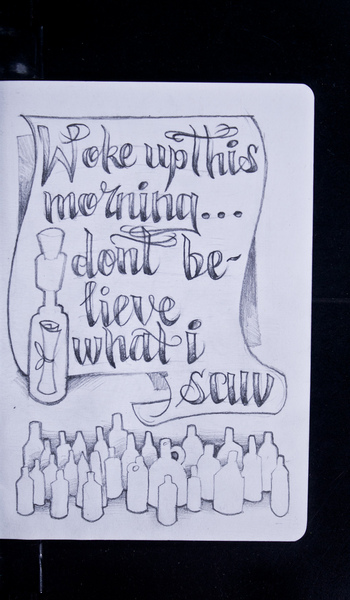 Woke up This
morning...
dont be-
lieve
what i
saw